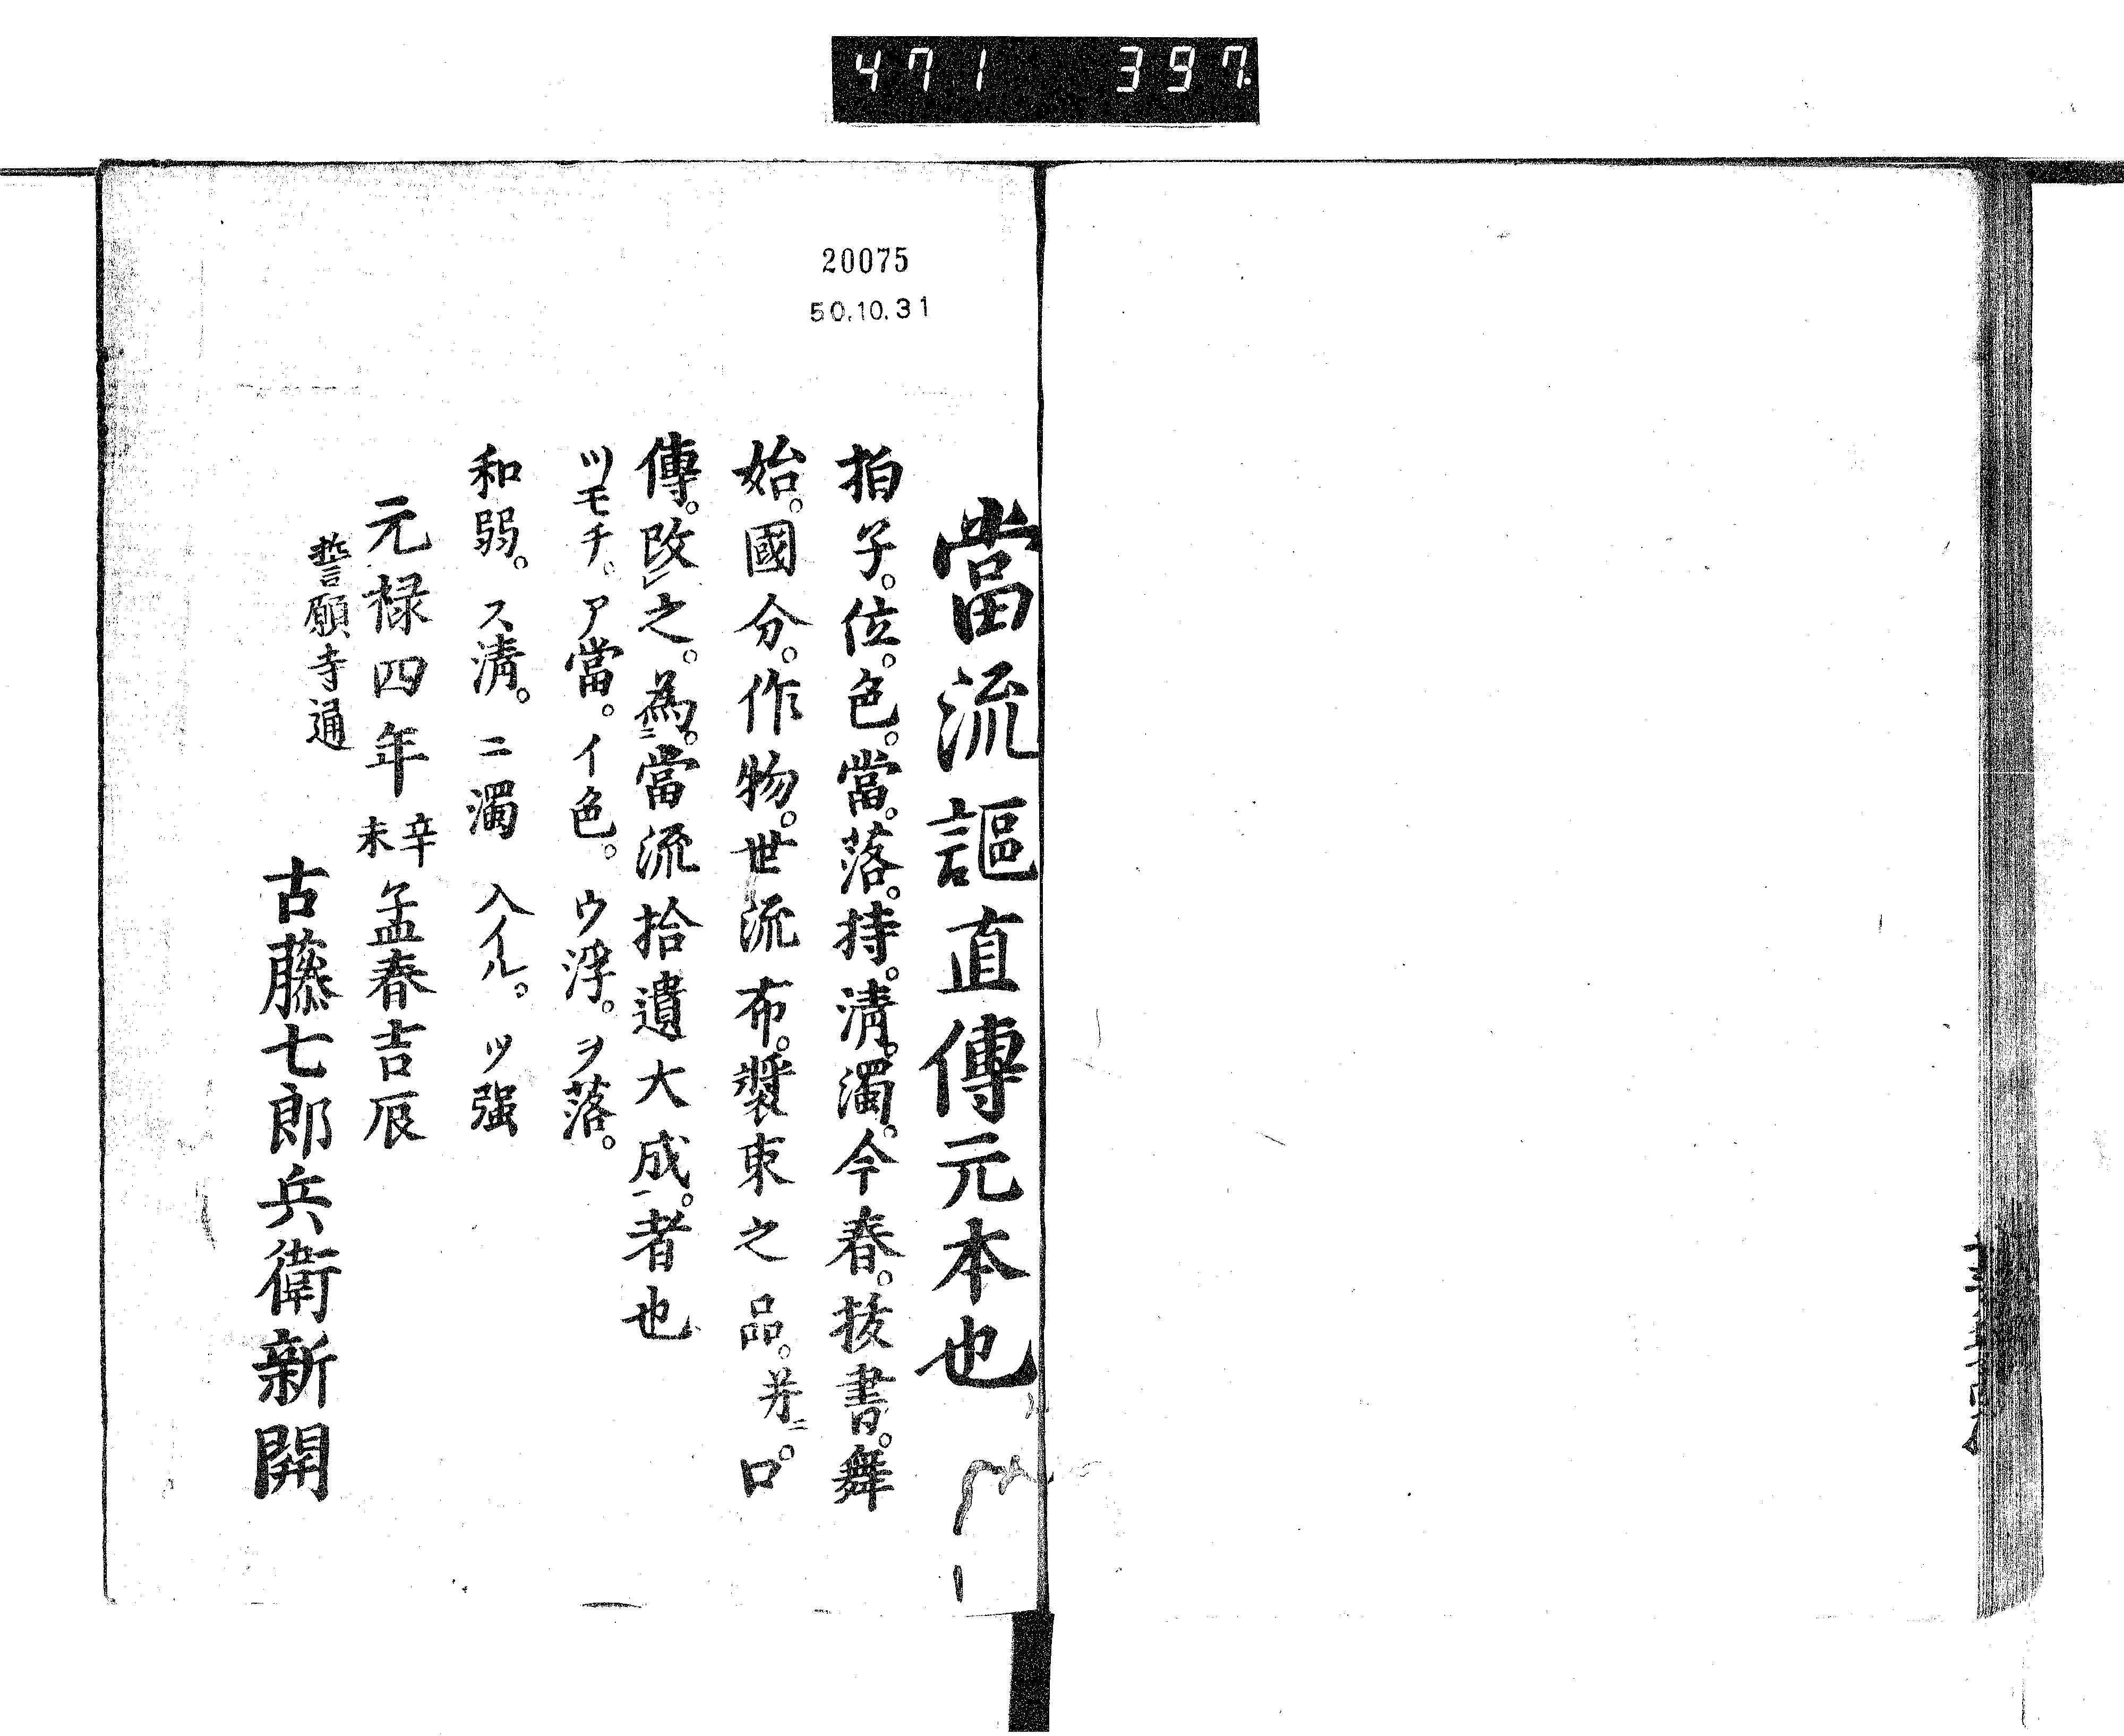 471 397
20075
50.10.31
當流謳直傳元本也
拍子。位。色。當。落。持。清。濁。今春。抜書。舞
始。國分。作物。世流布。裝束之品。并ニ。口
傳。改レ之。為ニ。當流拾遺大成一。者也
ツモチ。ア當。イ色。ウ浮。ヲ落。
和弱。ス清。ニ濁 入イル。ツ强
元禄四年辛未孟春吉辰
誓願寺通
古藤七郎兵衛新開